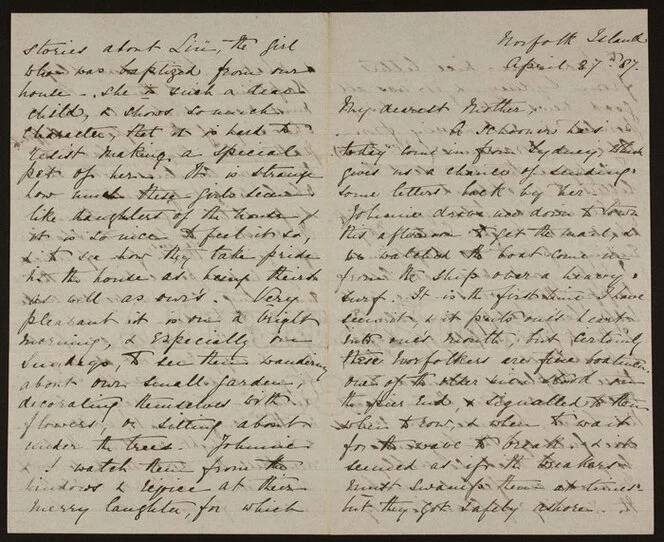 stories about Siü, the girl
who was baptized from our
house. She is such a dear
child, & shows so much
character, that it is hard to
resist making a special
pet of her. It is strange
how much these girls seem
like daughters of the house,
it is so nice to feel it so,
& to see how they take pride
in the house as being theirs
as well as our's. Very
pleasant it is on a bright
morning, & especially on
Sundays, to see them wandering
about our small garden,
decorating themselves with
flowers, or sitting about
under the trees. Johnnie
& I watch them from the
windows & rejoice at their
merry laughter, for which
Norfolk Island
April 27th 87.
My dearest Mother,
A schooner has
today come in from Sydney, which
gives us a chance of sending
some letters back by her.
Johnnie drove me down to town
this afternoon to get the mail, &
we watched the boat come in
from the ship over a heavy
surf. It is the first time I have
seen it, & it puts one's heart
into one's mouth, but certainly
these Norfolkers are fine boatmen.
One of the older men stood on
the pier end, & signalled to them
when to row, & when to wait
for the wave to break. & it
seemed as if the breakers
must swamp them at times
but they got safely ashore.